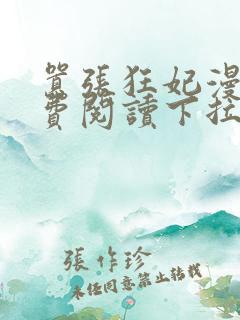 囂張狂妃漫
費閱讀下拉
張作珍
未經同意禁止轉載